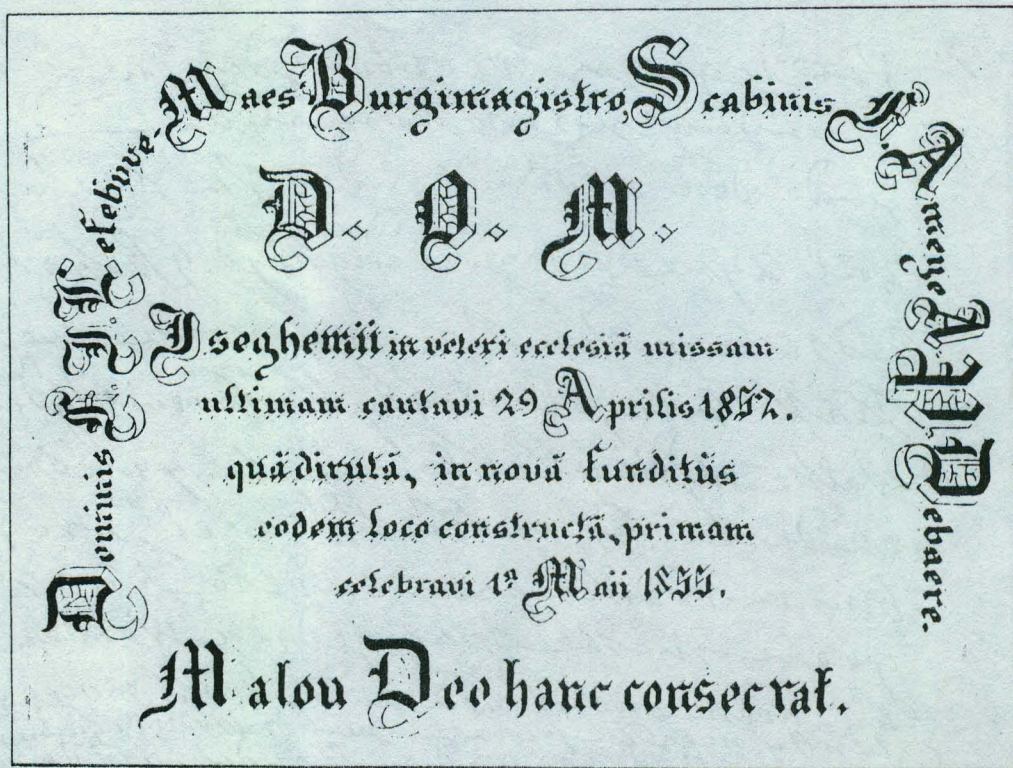 Dominis Lefebvre-Maes Burgimagistro, Scabinis Ameye A P Debaere.
D. O. M.
Iseghemii in veteri ecclesiâ missam
ultimam cantavi 29 Aprilis 1852.
quâ dirutâ, in novâ funditùs
eodem loco constructâ, primam
celebravi 1ª Maii 1855.
Malou Deo hanc consecrat.